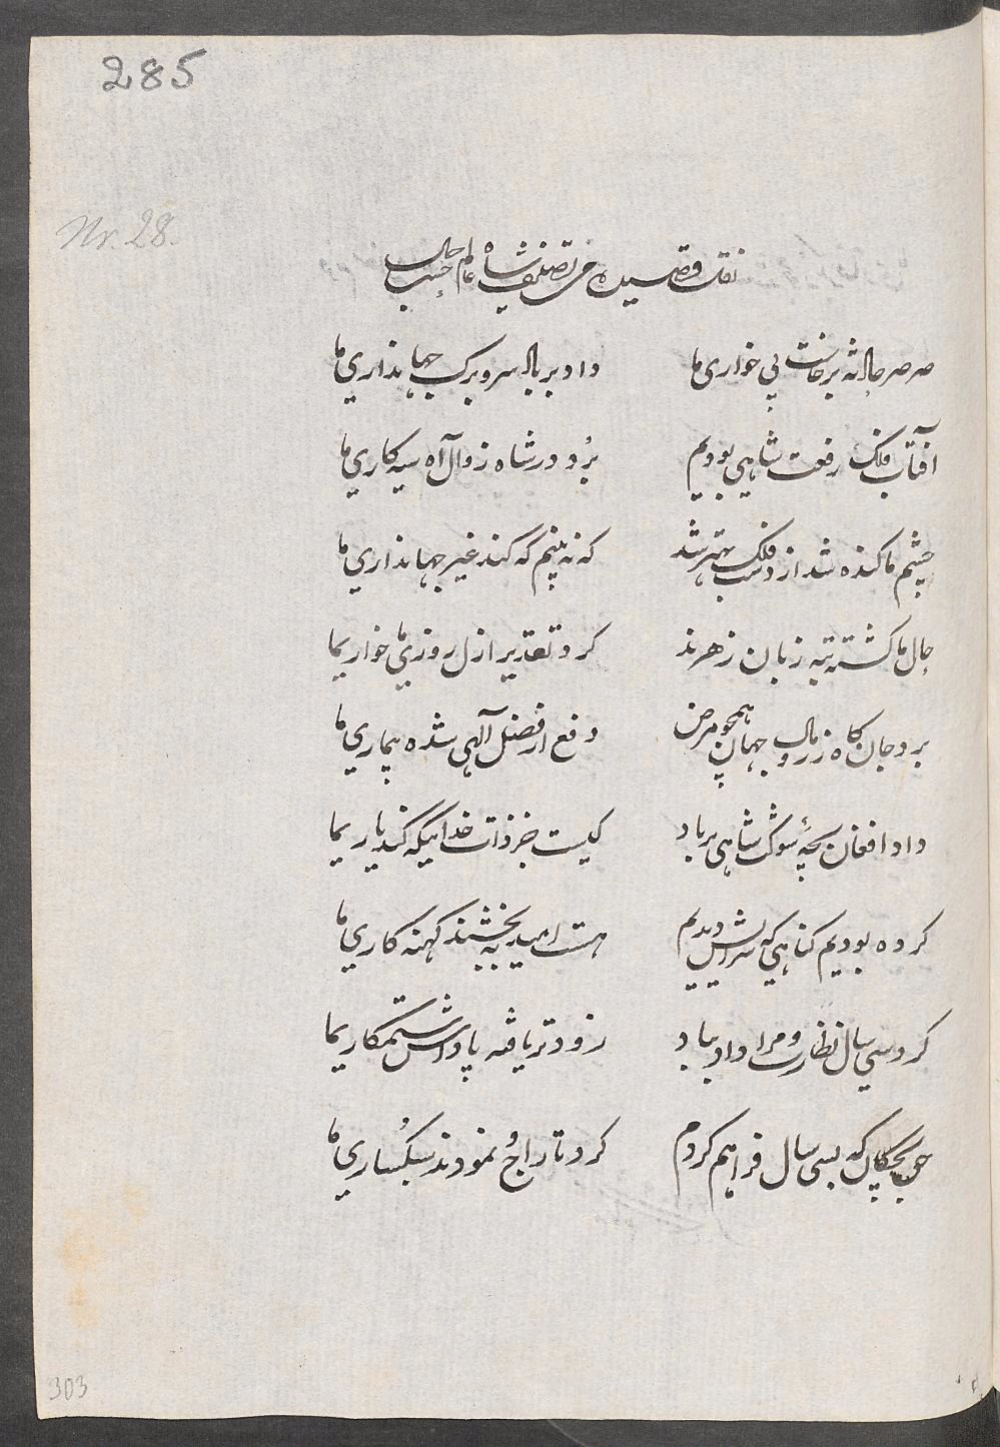 285
Nr. 28.
نقل قصیده من تصنیف شاه عالم حسب حال
صرصر حادثه برخاست پی خواری ما    داد بر باد سر و برک جهانداری ما
آفتاب فلک رفعت شاهی بودیم    برد در شاه زوال آه سیه کاری ما
چشم ما کنده شد از دست فلک بهتر شد    که نه بینم که کند غیر جهانداری ما
کرد تقدیر ازل روزی ما خواریما
برد جان کاه زر و مال جهان همچو مرض    دفع از فضل آلهی شده بیماری ما
داد افغان بچهٔ شوکت شاهی برباد    کیست جز ذات خدا بیکه کند یاریما
کرده بودیم کناهی که سزایش دیدیم    هست امید به بخشند کهنه کاری ما
کرد سی سال نظارت و مرا داد بباد    زودتر یافته پاداش ستمکاریما
که بسی سال فراهم کردم    کرد تاراج و نمودند سبکساری ما
303